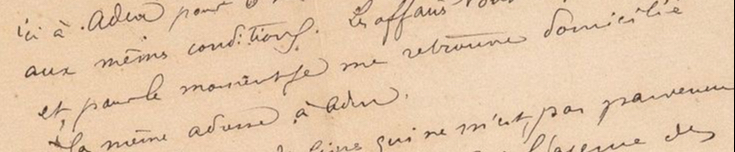 ici à Aden pour
aux mêmes conditions. Les affaires vont
et, pour le moment je me retrouve domicilié
à la même adresse à Aden.
livre qui ne m'est pas parvenu
des